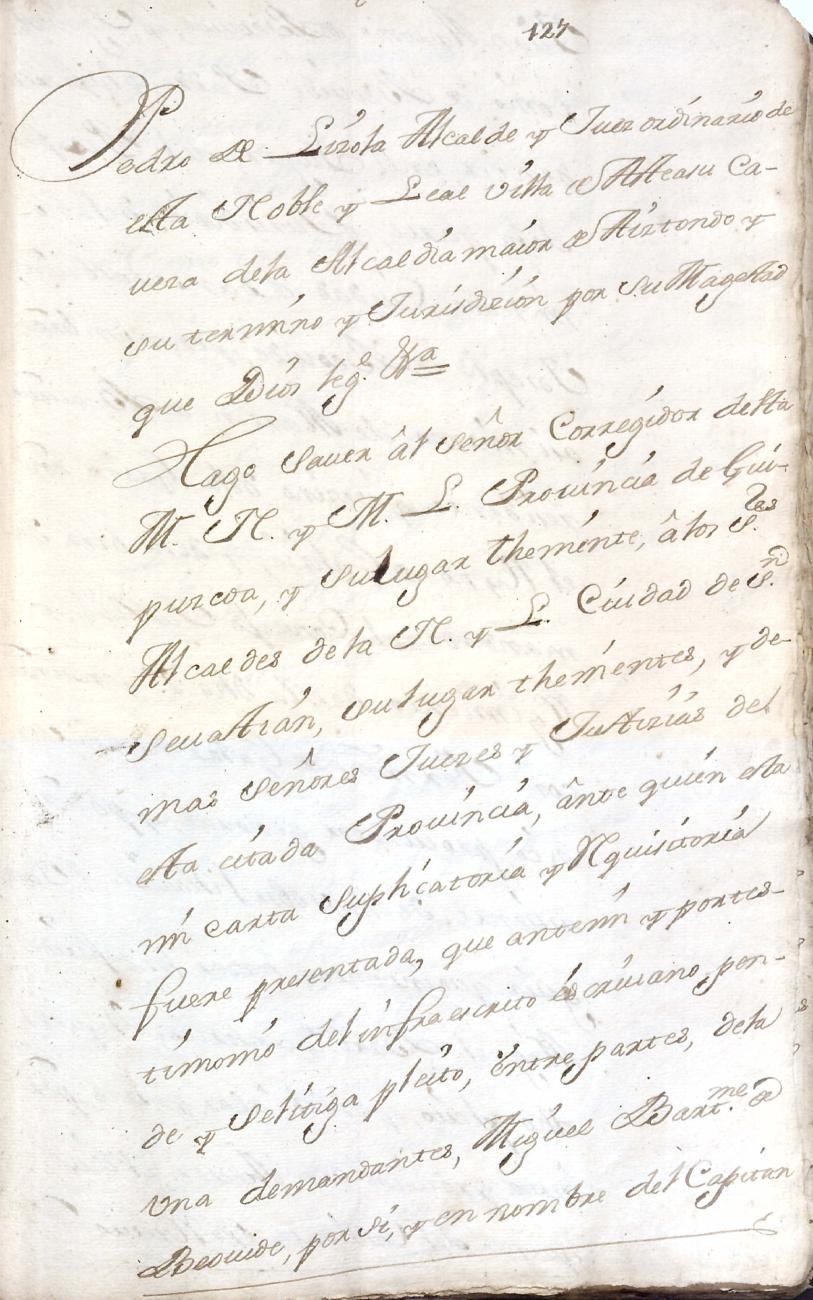 127
Pedro de Lizola Alcalde y Juez ordinario de
esta Noble y Leal villa de Asteasu Ca-
vera dela Alcaldia maior de Aiztondo y
su termino y Jurisdicion por su Magestad
que Dios leg.e &a
Hago saver âl señor Corregidor desta
M. N. y M. L. Provincia de Gui-
puzcoa, y sulugar theniente, â los S.res
Alcaldes dela N. y L. Ciudad de S.n
Sevastian, sulugar thenientes, y de-
mas señores Juezes y Justizias del
esta citada Provincia, ânte quien esta
mi carta suplicatoria y Rquisitoria
fuere presentada, que antemi y portes-
timonio del infraescrito escrivano, pen-
de y selitiga pleito, entre partes, dela
una demandantes, Miguel Bart.me de
Beovide, por si, y en nombre del Capitan